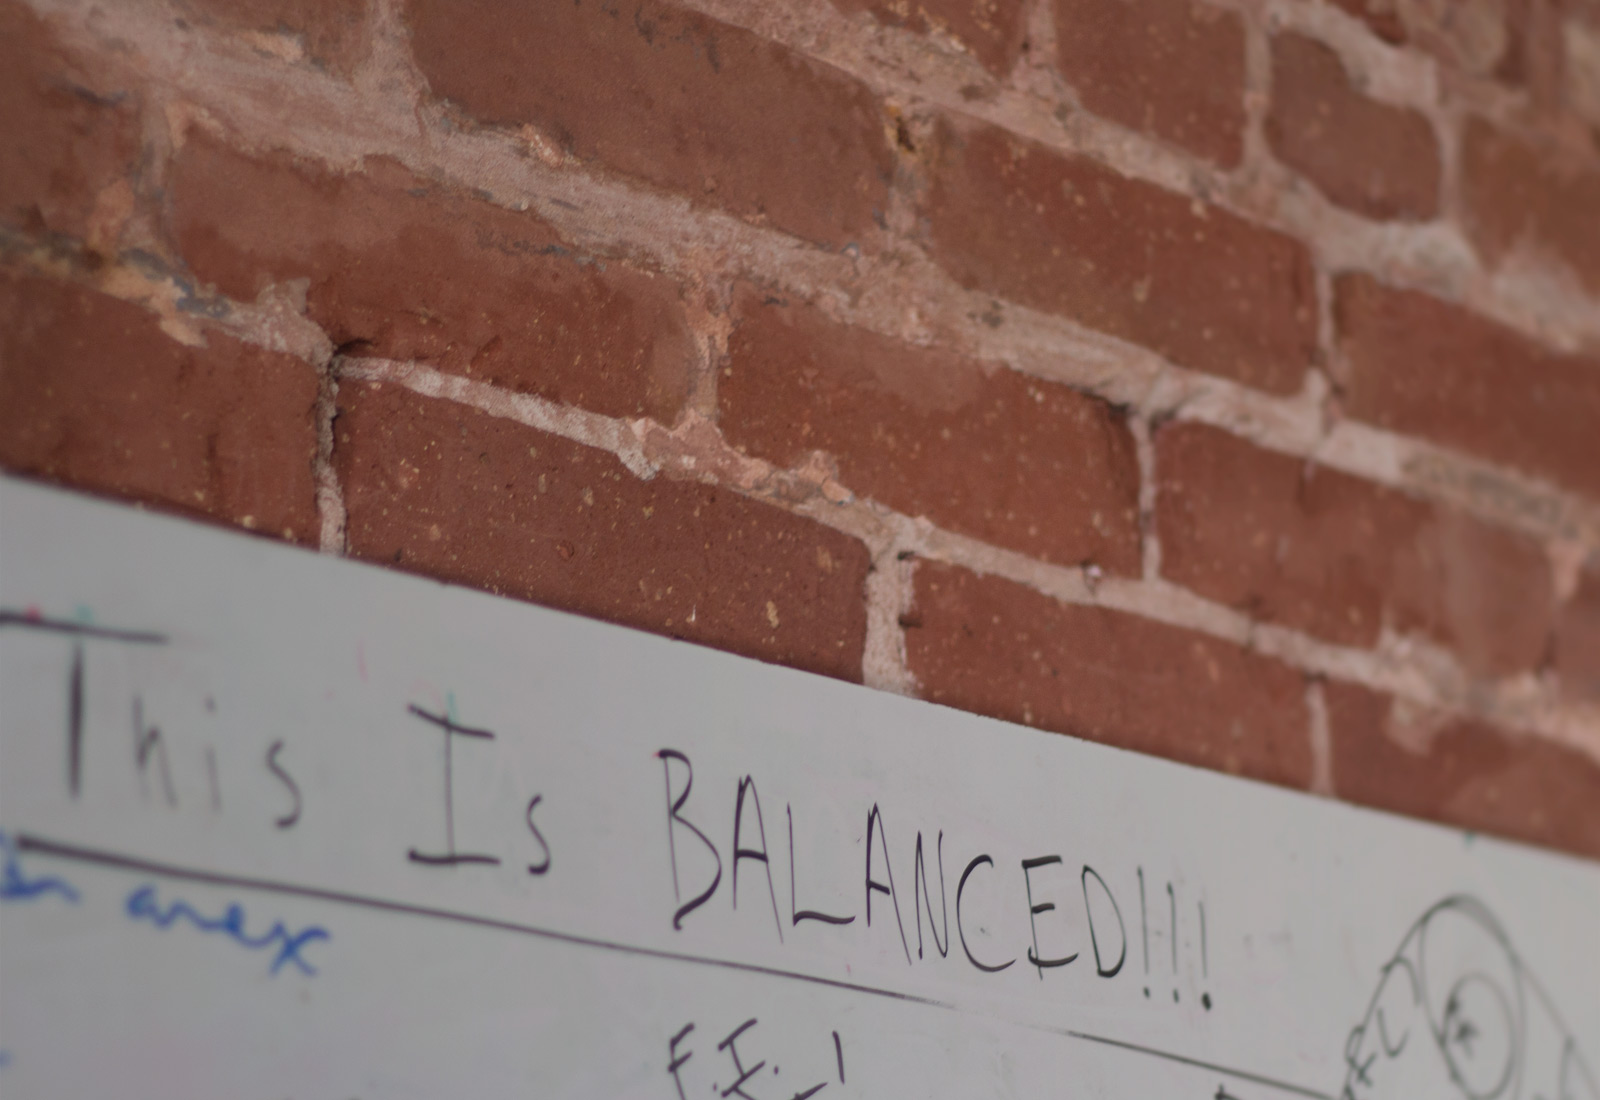 This Is BALANCED!!!
anex
F.I.